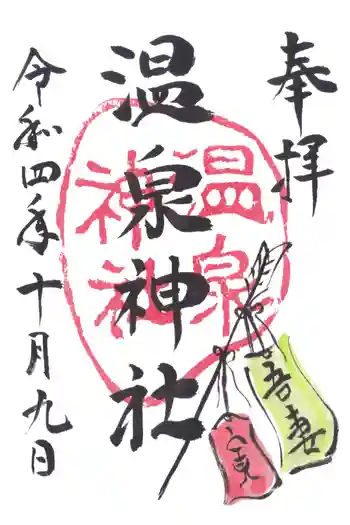 奉拝
温泉神社
温泉
神社
吾妻
令和四年十月九日